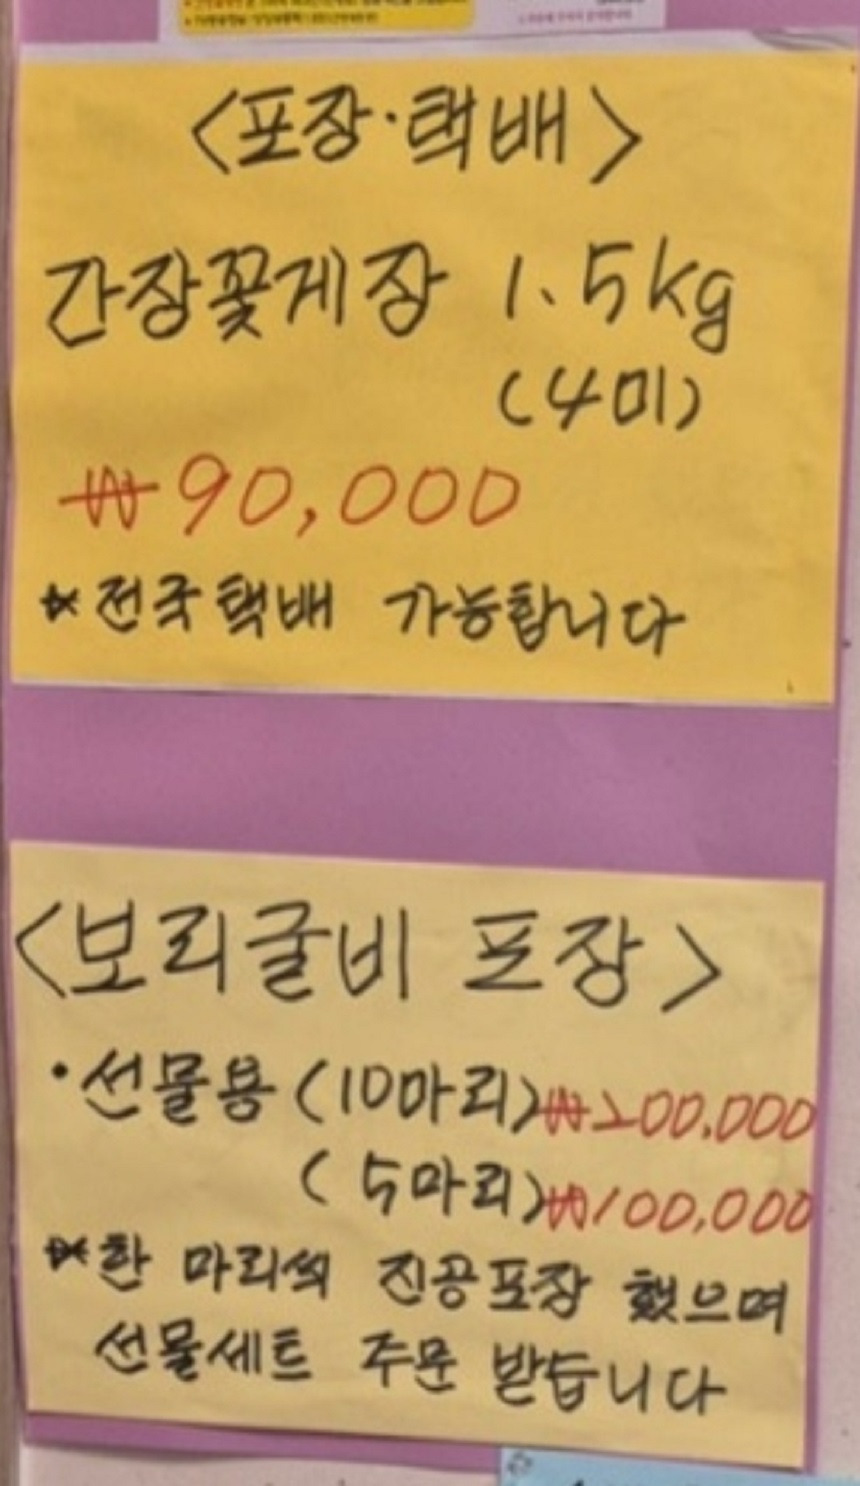 <포장·택배>
간장꽃게장 1.5kg
(4미)
₩90,000
*전국택배 가능합니다
<보리굴비 포장>
·선물용(10마리)₩200,000
(5마리)₩100,000
*한 마리씩 진공포장 했으며
선물세트 주문 받습니다